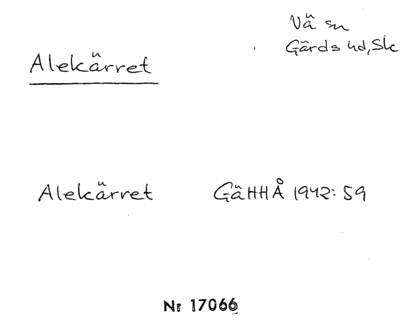 Vä sn
Gärds hd, Sk
Alekärret
Alekärret GäHHÅ 1942: 59
Nr 17066